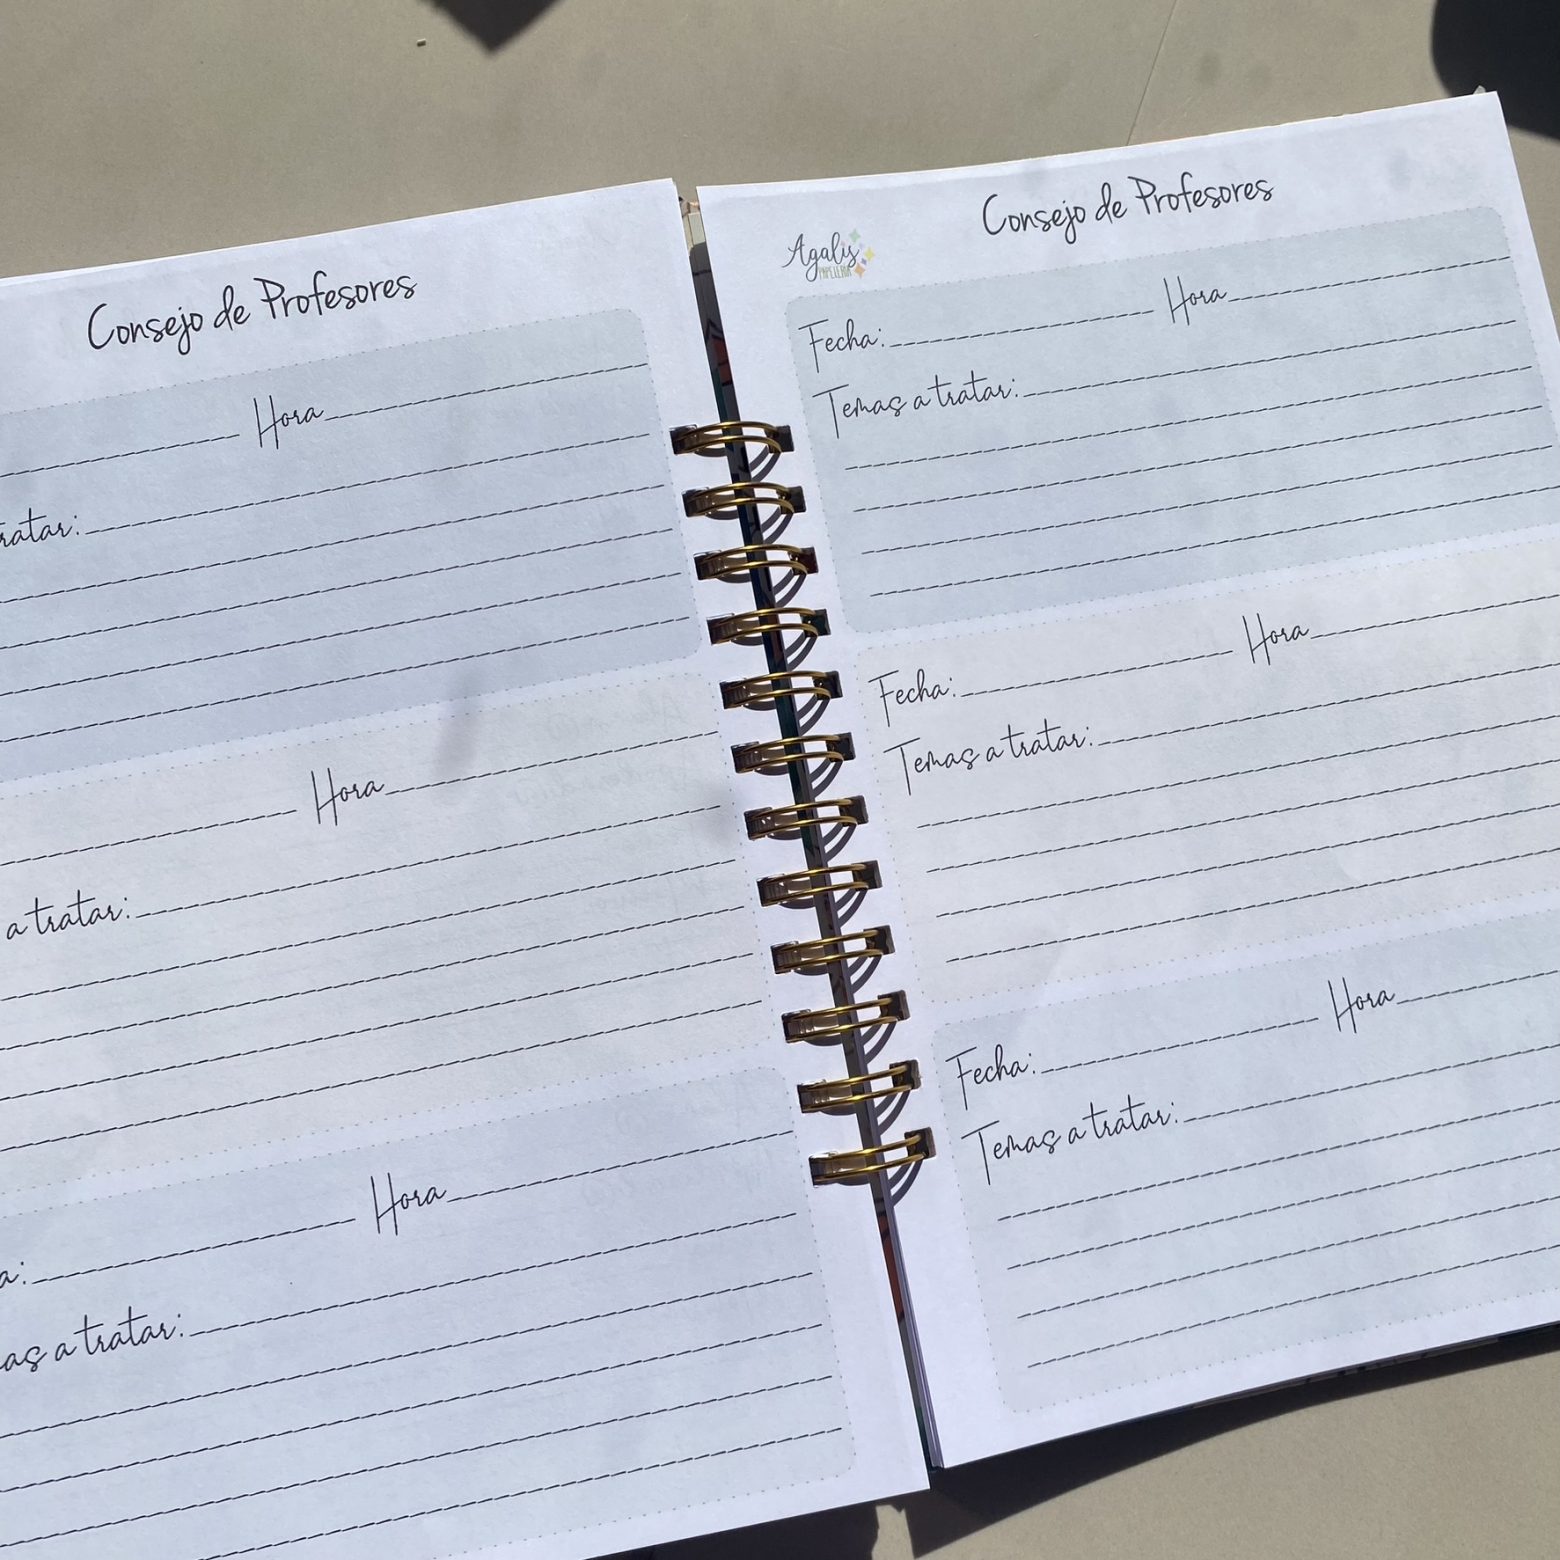 Consejo de Profesores
Hora
ratar:
Hora
a tratar:
Hora
a:
as a tratar:
Consejo de Profesores
Agalis
PAPELERIA
Fecha: Hora
Temas a tratar:
Fecha: Hora
Temas a tratar:
Fecha: Hora
Temas a tratar: